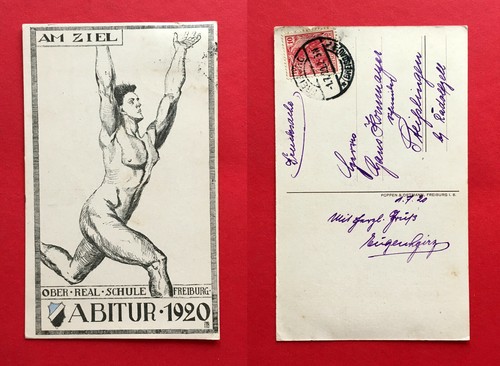 AM ZIEL
OBER · REAL · SCHULE FREIBURG
ABITUR · 1920
Drucksache
Herrn
Hans
b/ Radolfzell
POPPEN & ORTMANN, FREIBURG I. B.
1.7.20
Mit herzl. Gruß
Eugen